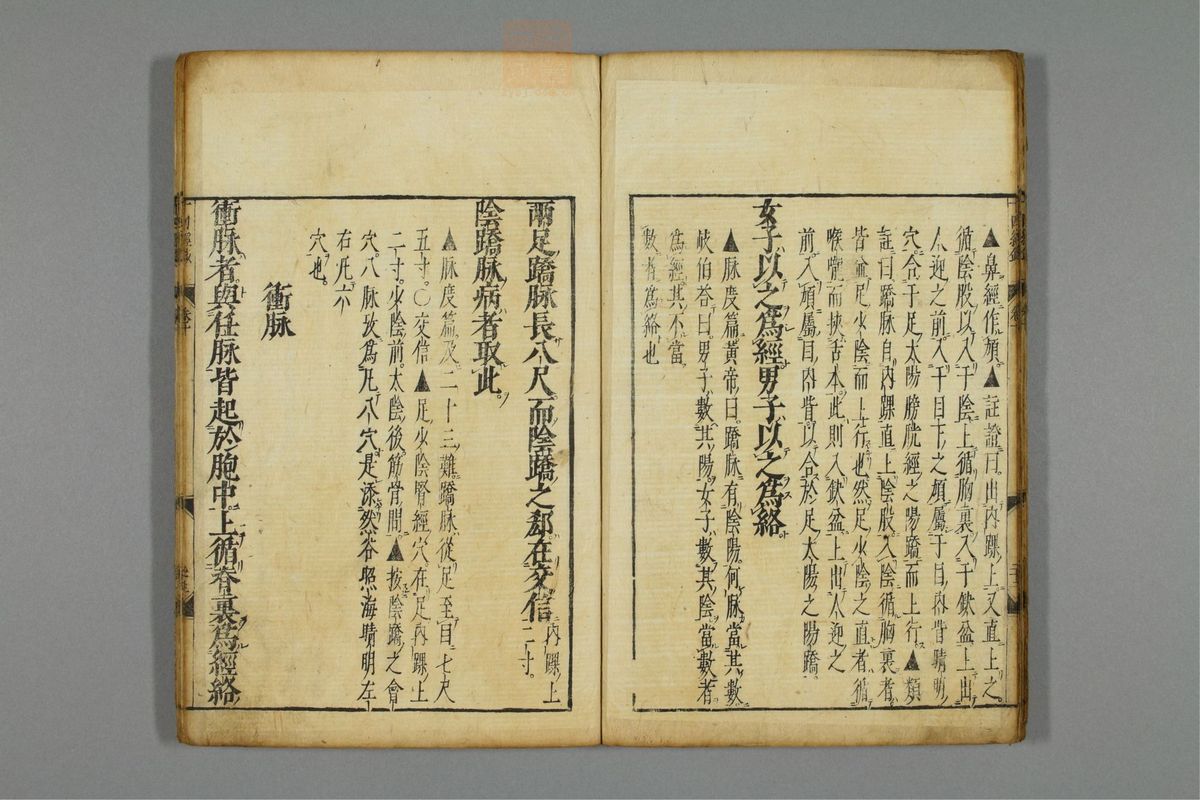 ▲鼻經作頄▲註證曰出內踝上又直上之
循陰股以入于陰上循胸裏入于缺盆上出
人迎之前入于目下之頄屬于目內眥睛明
穴合于足太陽膀胱經之陽蹻而上行▲類
註曰蹻脉自內踝直上陰股入陰循胸裏者
皆並足少陰而上行也然足少陰之直者循
喉嚨而挾舌本此則入缺盆上出人迎之
前入頄屬目內眥以合於足太陽之陽蹻
女子以之爲經男子以之爲絡
▲脉度篇黃帝曰蹻脉有陰陽何脉當其數
岐伯荅曰男子數其陽女子數其陰當數者
爲經其不當
數者爲絡也
兩足蹻脉長八尺而陰蹻之郄在交信內踝上
二寸
陰蹻脉病者取此
▲脉度篇及二十三難蹻脉從足至目七尺
五寸○交信▲足少陰腎經穴在足內踝上
二寸少陰前太陰後筋骨間▲按陰蹻之會
穴八脉攷爲凡八穴是添然谷照海睛明左
右凡六
穴也
衝脉
衝脉者與任脉皆起於胞中上循脊裏爲經絡